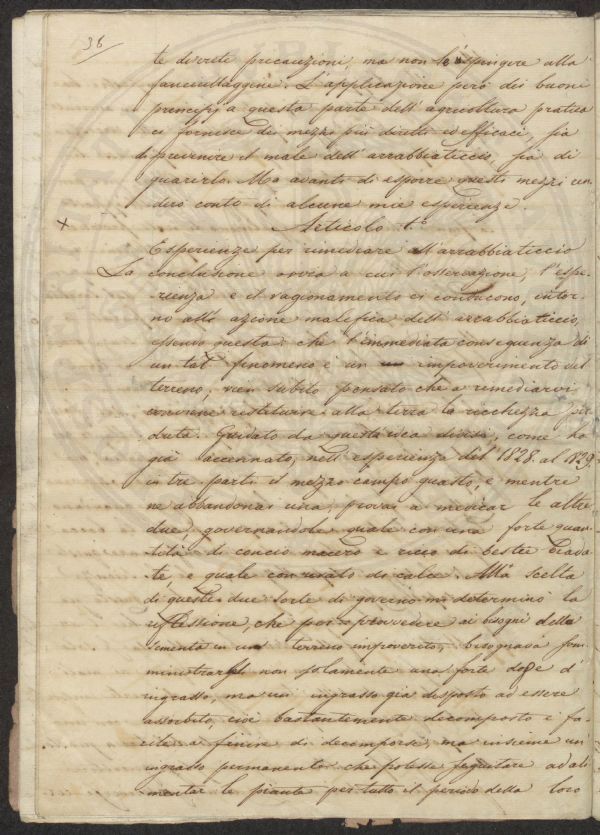 36
te dovute precauzioni, ma non le spingere alla
fanciullaggine. L'applicazione però dei buoni
principj a questa parte dell'agricoltura pratica
ci fornisce dei mezzi più diretti ed efficaci, sia
di prevenire il male dell'arrabbiaticcio, sia di
guarirlo. Ma avanti di esporre questi mezzi ren
derò conto di alcune mie esperienze.
x Articolo 1.°
Esperienze per rimediare all'arrabbiaticcio
La conclusione ovvia a cui l'osservazione, l'espe
rienza e il ragionamento ci conducono, intor
no alla azione malefica dell'arrabbiaticcio,
essendo questa: che l'immediata conseguenza di
un tal fenomeno è un impoverimento del
terreno, vien subito pensato che a rimediarvi
convenne restituire alla terra la ricchezza per
duta. Guidato da questa idea divisi, come ho
già accennato, nell'esperienza del 1828. al 1829
in tre parti il mezzo campo guasto, e mentre
ne abbandonai una, provai a medicar le altre
due, governandole quale con una forte quan
tità di concio macero e ricco di bestie biada
te, e quale con usato di calce. Alla scelta
di queste due sorte di governo mi determinò la
riflessione, che per provvedere ai bisogni della
sementa in un terreno impoverito, bisognava som
ministrargli non solamente una forte dose d'
ingrasso, ma un ingrasso già disposto ad essere
assorbito, cioè bastantemente decomposto e fa
cile a finire di decomporsi, ma insieme un
ingrasso permanente che potesse seguitare ad ali
mentar le piante per tutto il periodo della loro